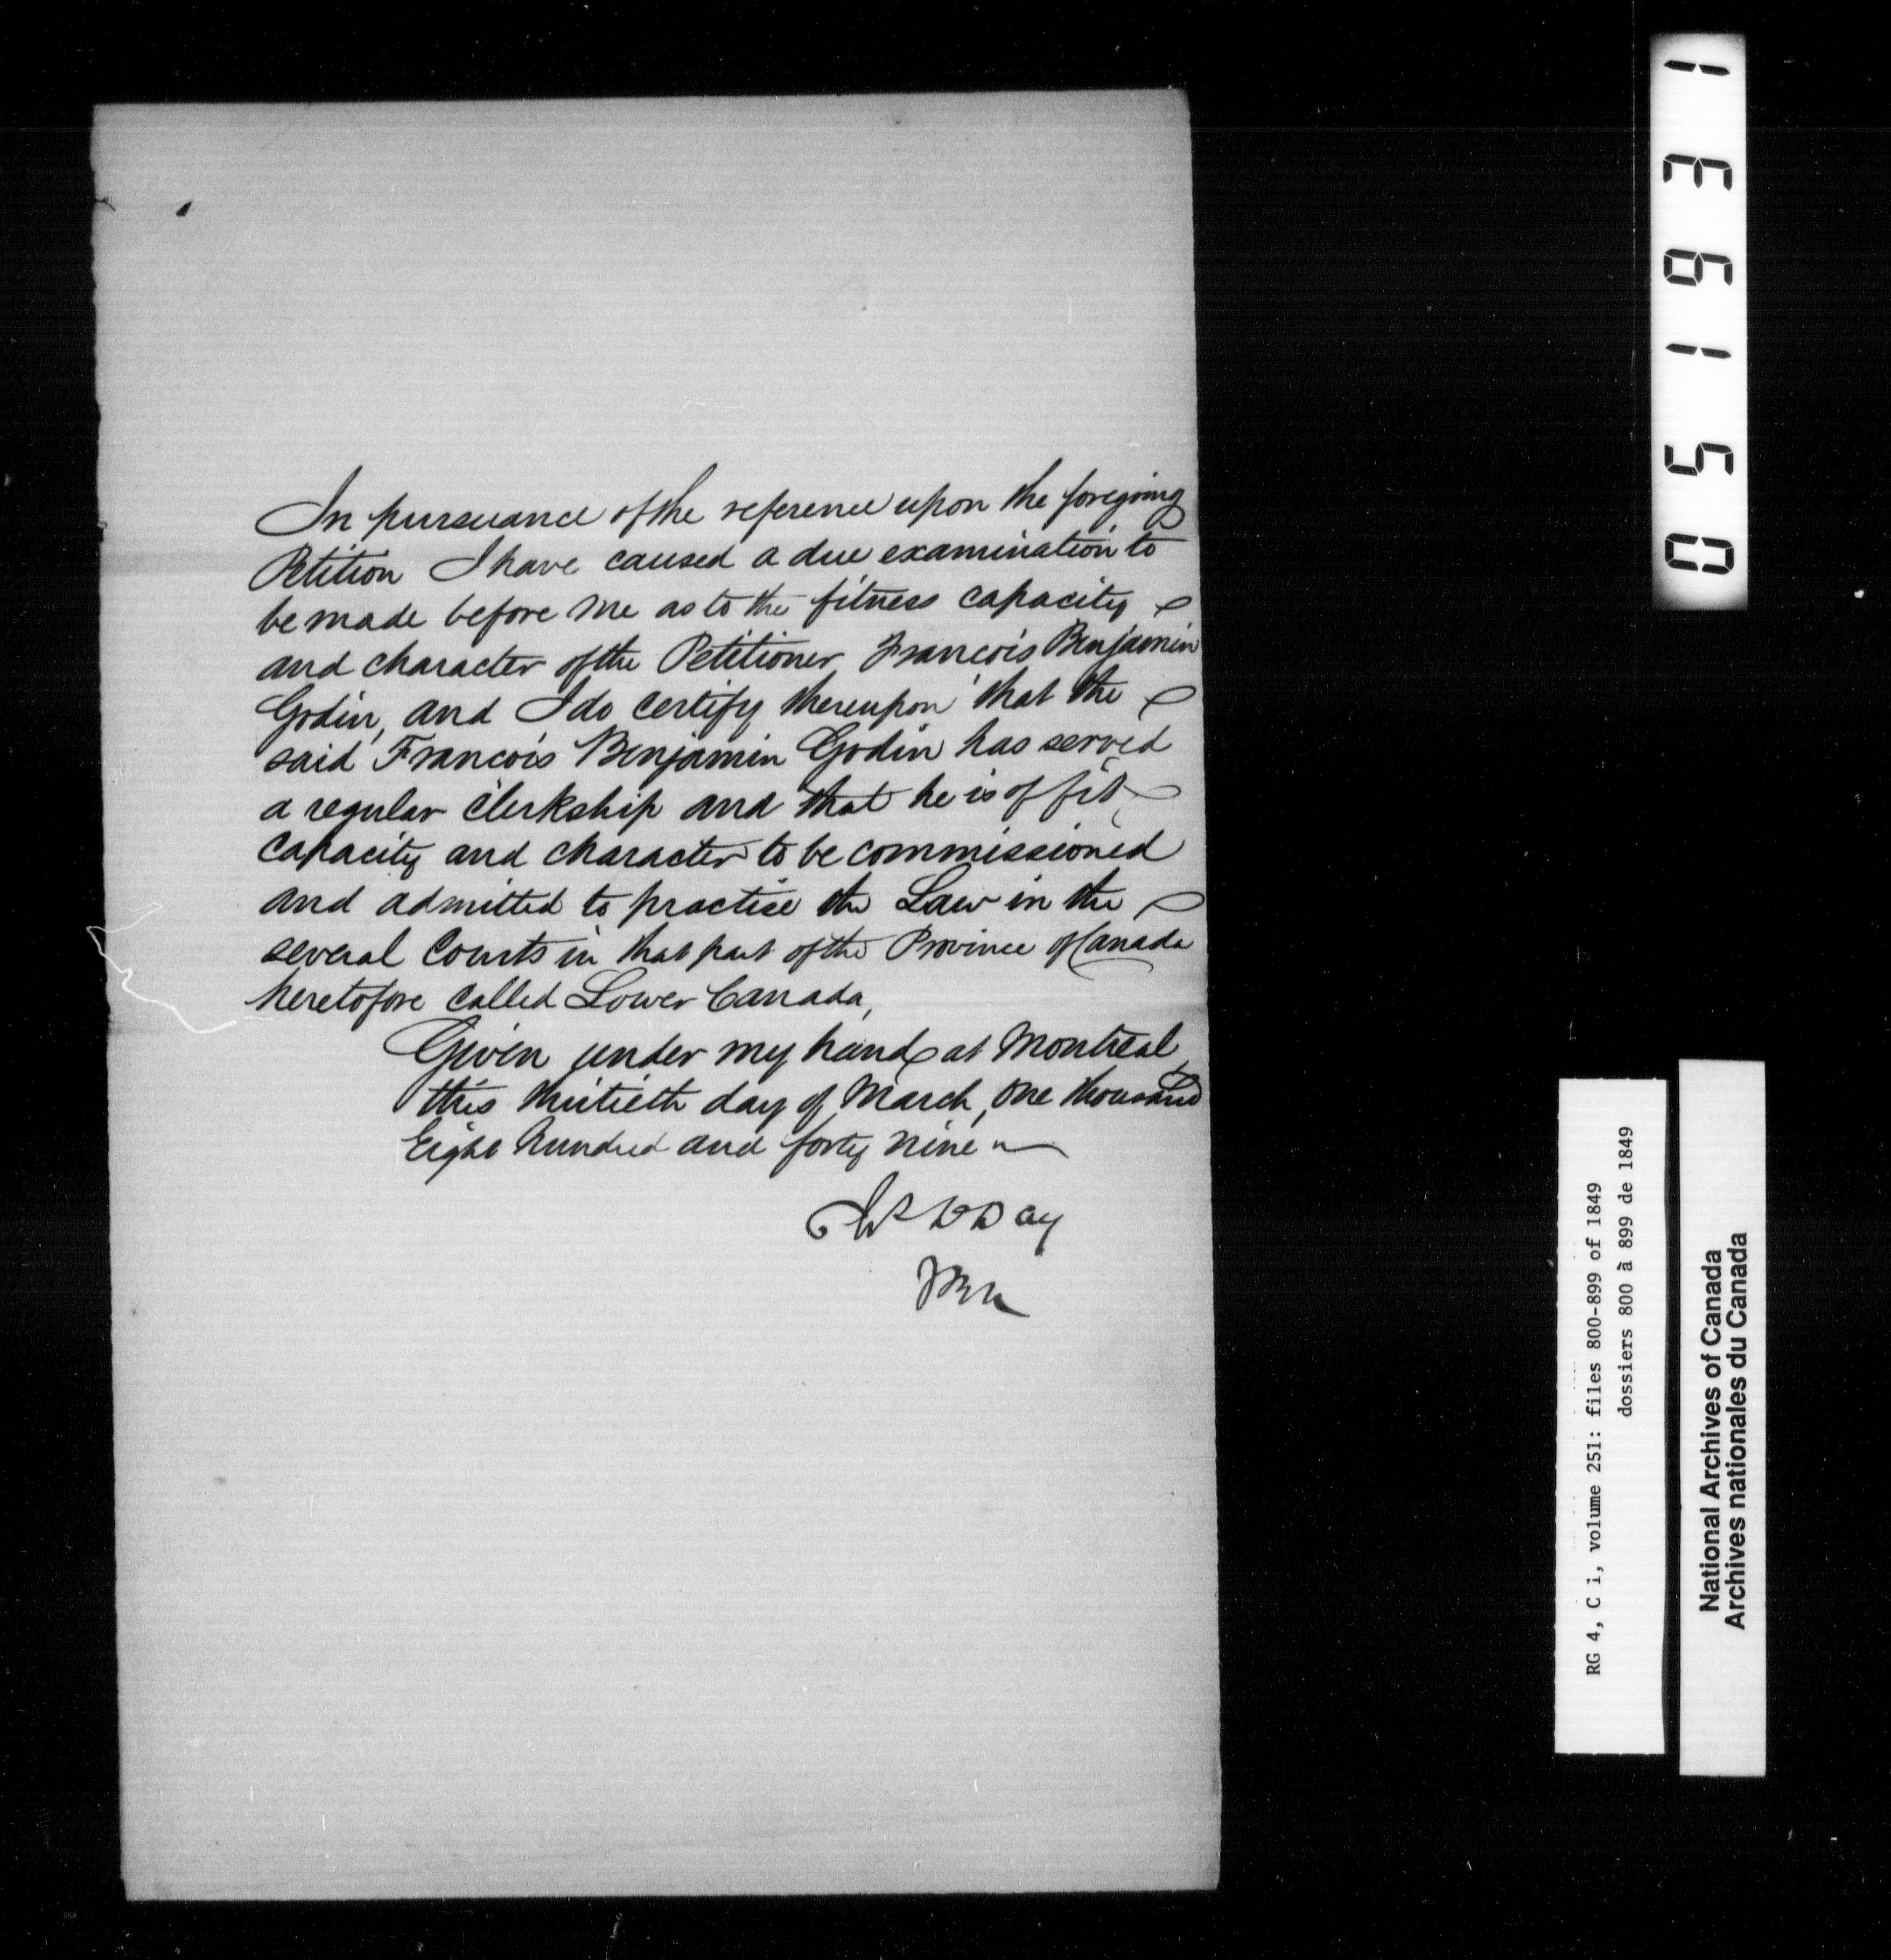 In pursuance of the reference upon the foregoing
Petition I have caused a due examination to
be made before me as to the fitness capacity
and character of the Petitioner François Benjamin
Godin, and I do certify thereupon that the
said Francois Benjamin Godin has served
a regular clerkship and that he is of fit
capacity and character to be commissioned
and admitted to practise the Law in the
several Courts in that part of the Province of Canada
heretofore called Lower Canada,
Given under my hand at Montreal
this thirtieth day of March, One thousand
Eight hundred and forty nine
Day
051631
RG 4, C i, volume 251: files 800-899 of 1849
dossiers 800 à 899 de 1849
National Archives of Canada
Archives nationales du Canada